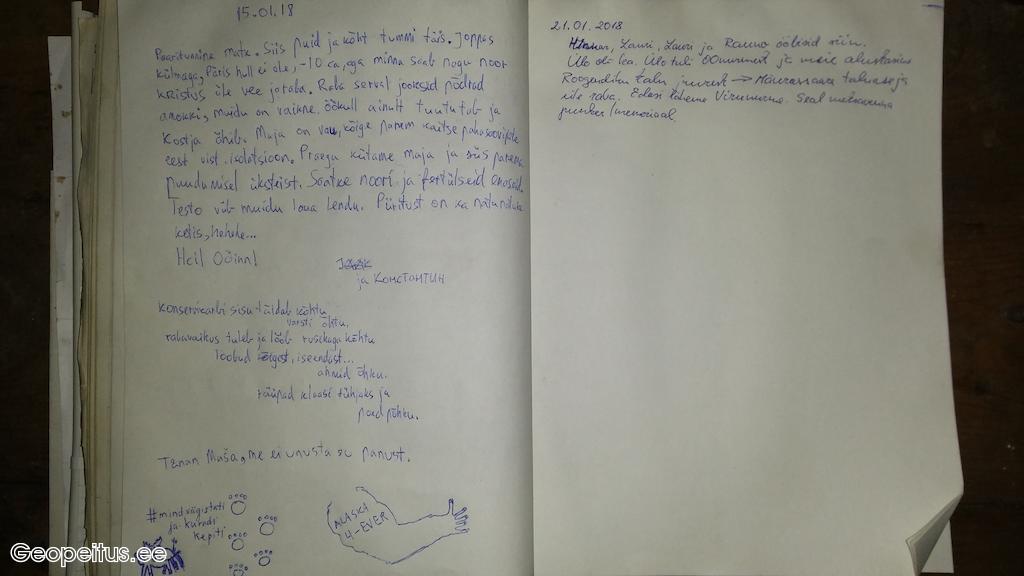 15.01.18
Paaritunnine matk. Siis puid ja kõht tummi täis. Joppas
külmaga. Päris hull ei ole, -10 ca, aga minna saab nagu noor
Kristus üle vee jaraba. Raba serval jooksid põdrad
anokki, muidu on vaikne. Öökull ainult tuututab ja
Kostja õhib. Maja on vau, kõige parem kaitse pahasoovijate
eest vist isolatsioon. Praegu kütame maja ja siis parem
puudumisel üksteist. Saatke noori ja fertiilseid
Testo viib muidu lendu. Piiritust on ka
ketis, hehehe...
Heil Odinn!
ja КОНСТАНТИН
Konservkarbi sisu täidab kõhtu
varsti õhtu,
rabavaikus tuleb ja lööb rusikaga kõhtu
loobud kõigest, iseendist...
ahmid õhku.
rüüpad klaasi tühjaks ja
poed põhku.
Tänan Maša, me ei unusta su panust.
#mindvägistati
ja kuradi
kepiti
ALASKA
4-EVER
21.01.2018
Lauri, Laura ja Rauno ööbisid siin.
Ülo oli ka. Ülo tuli Oonurmest ja meie alustasime
Roogoldi talu juurest → Mäurassaare taluase ja
üle raba. Edasi läheme Virunurme. Seal metsavenna
punker/memoriaal.
Geopeitus.ee